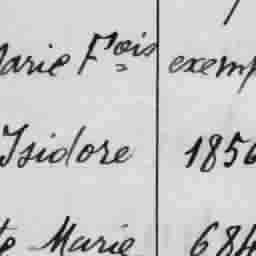 Marie Fois exemp
Isidore 1856
te Marie 684